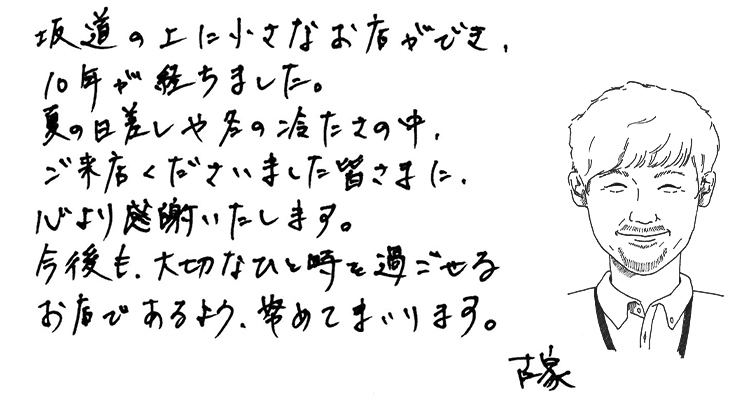 坂道の上に小さなお店ができ、
10年が経ちました。
夏の日差しや冬の冷たさの中、
ご来店くださいました皆さまに、
心より感謝いたします。
今後も、大切なひと時を過ごせる
お店であるよう、努めてまいります。
古家